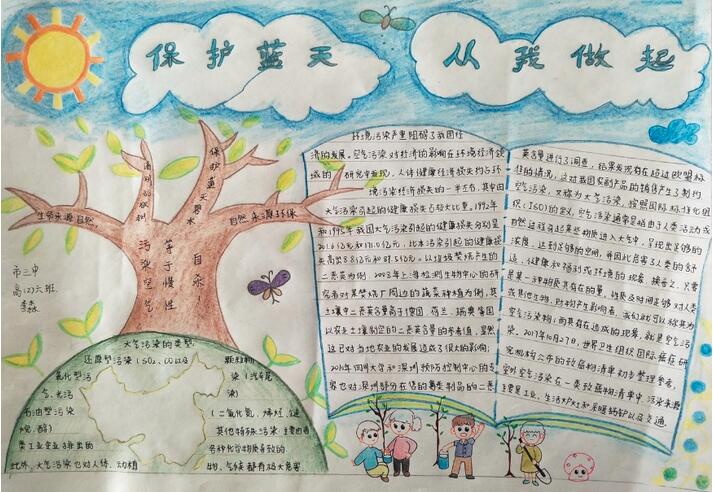 保护蓝天
从我做起
保护蓝天碧水
清明的权利
生命来源自然
自然来源环保
污染空气
等于慢性
自杀!
市三中
高(2)六班
李淼
大气污染的类型
还原型污染(SO2、CO以及
颗粒物)
氧化型污
染(汽车尾
气、光污
石油型污染
(二氧化氮、烯烃、链
烷、醇)
其他特殊污染 主要由各
类工业企业排出的
各种化学物质导致的
此外,大气污染也对人体、动植
物、气候都有极大危害
环境污染严重阻碍了我国经
济的发展。空气污染对经济的影响在环境经济领
域的一研究中发现,人体健康经济损失约占环
境污染经济损失的一半左右,其中由
大气污染引起的健康损失占较大比重。1992年
和1995年我国大气污染引起的健康损失分别是
201.6亿元和171.0亿元,比水污染引起的健康损
二恶英为例。2003年上海检测生物中心的研
究者对某焚烧厂周边的蔬菜种植为例,其
土壤中二恶英含量高于德国、荷兰、瑞典等国
以农业土壤制定的二恶英含量的参考值,显然
这已对当地农业的发展造成了很大的影响;
2010年四川大学和深圳预防控制中心的专
家也对深圳部分在售的禽类制品的二恶
英含量进行了调查,结果发现有在超过欧盟标
准的情况。这对我国农副产品的销售产生了制约
空气污染,又称为大气污染,按照国际标准化组
织(ISO)的定义,空气污染通常是指由于人类活动或
自然过程引起某些物质进入大气中,呈现出足够的
浓度,达到足够的时间,并因此危害了人类的舒
适、健康和福利或环境的现象。换言之,只要
是某一种物质其存在的量、性质及时间足够对人类
或其他生物、财物产生影响者,我们就可以称其为
空气污染物;而其存在造成的现象,就是空气污
染。2017年10月27日,世界卫生组织国际癌症研
究机构公布的致癌物清单初步整理参考,
室外空气污染在一类致癌物清单中。污染来源
主要是工业、生活炉灶和采暖锅炉以及交通。